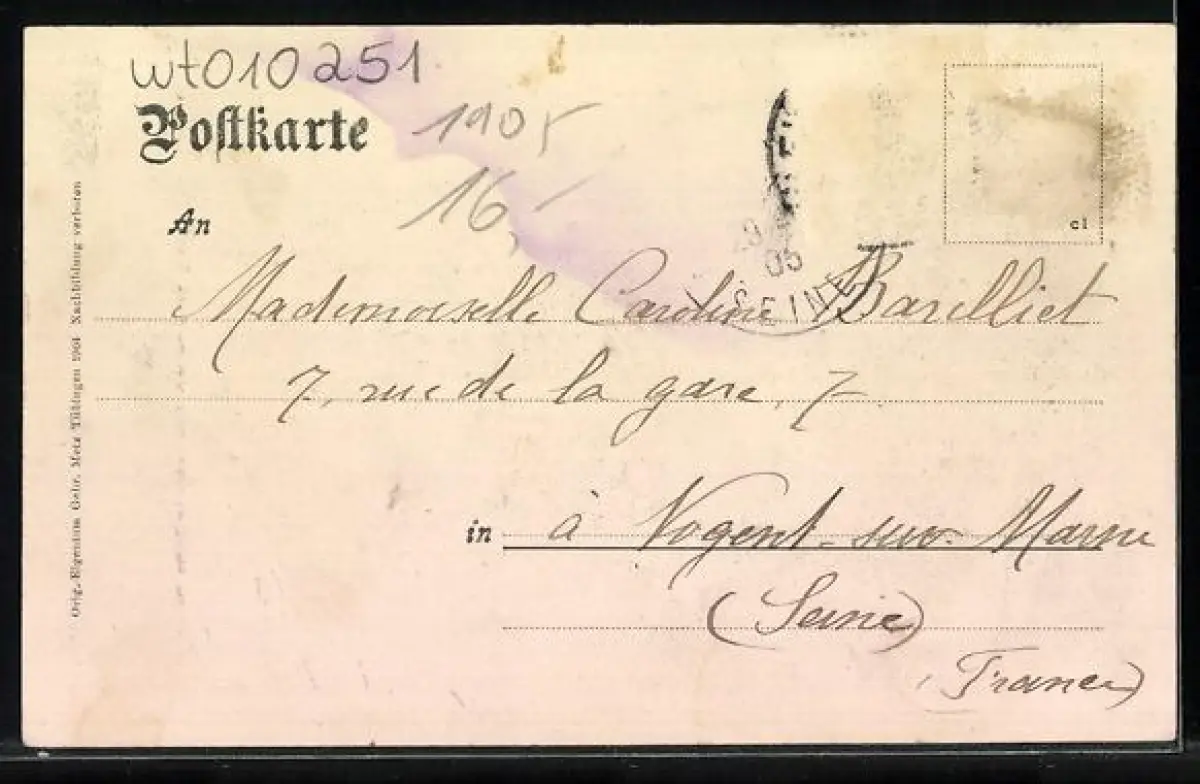 wt010251
Postkarte
1905
16-
An
cl
05
SEINE
Mademoiselle Caroline Barelliet
7, rue de la gare, 7
in à Nogent-sur-Marne
(Seine)
(France)
Orig.-Eigentum Gebr. Metz Tübingen 1904 Nachbildung verboten